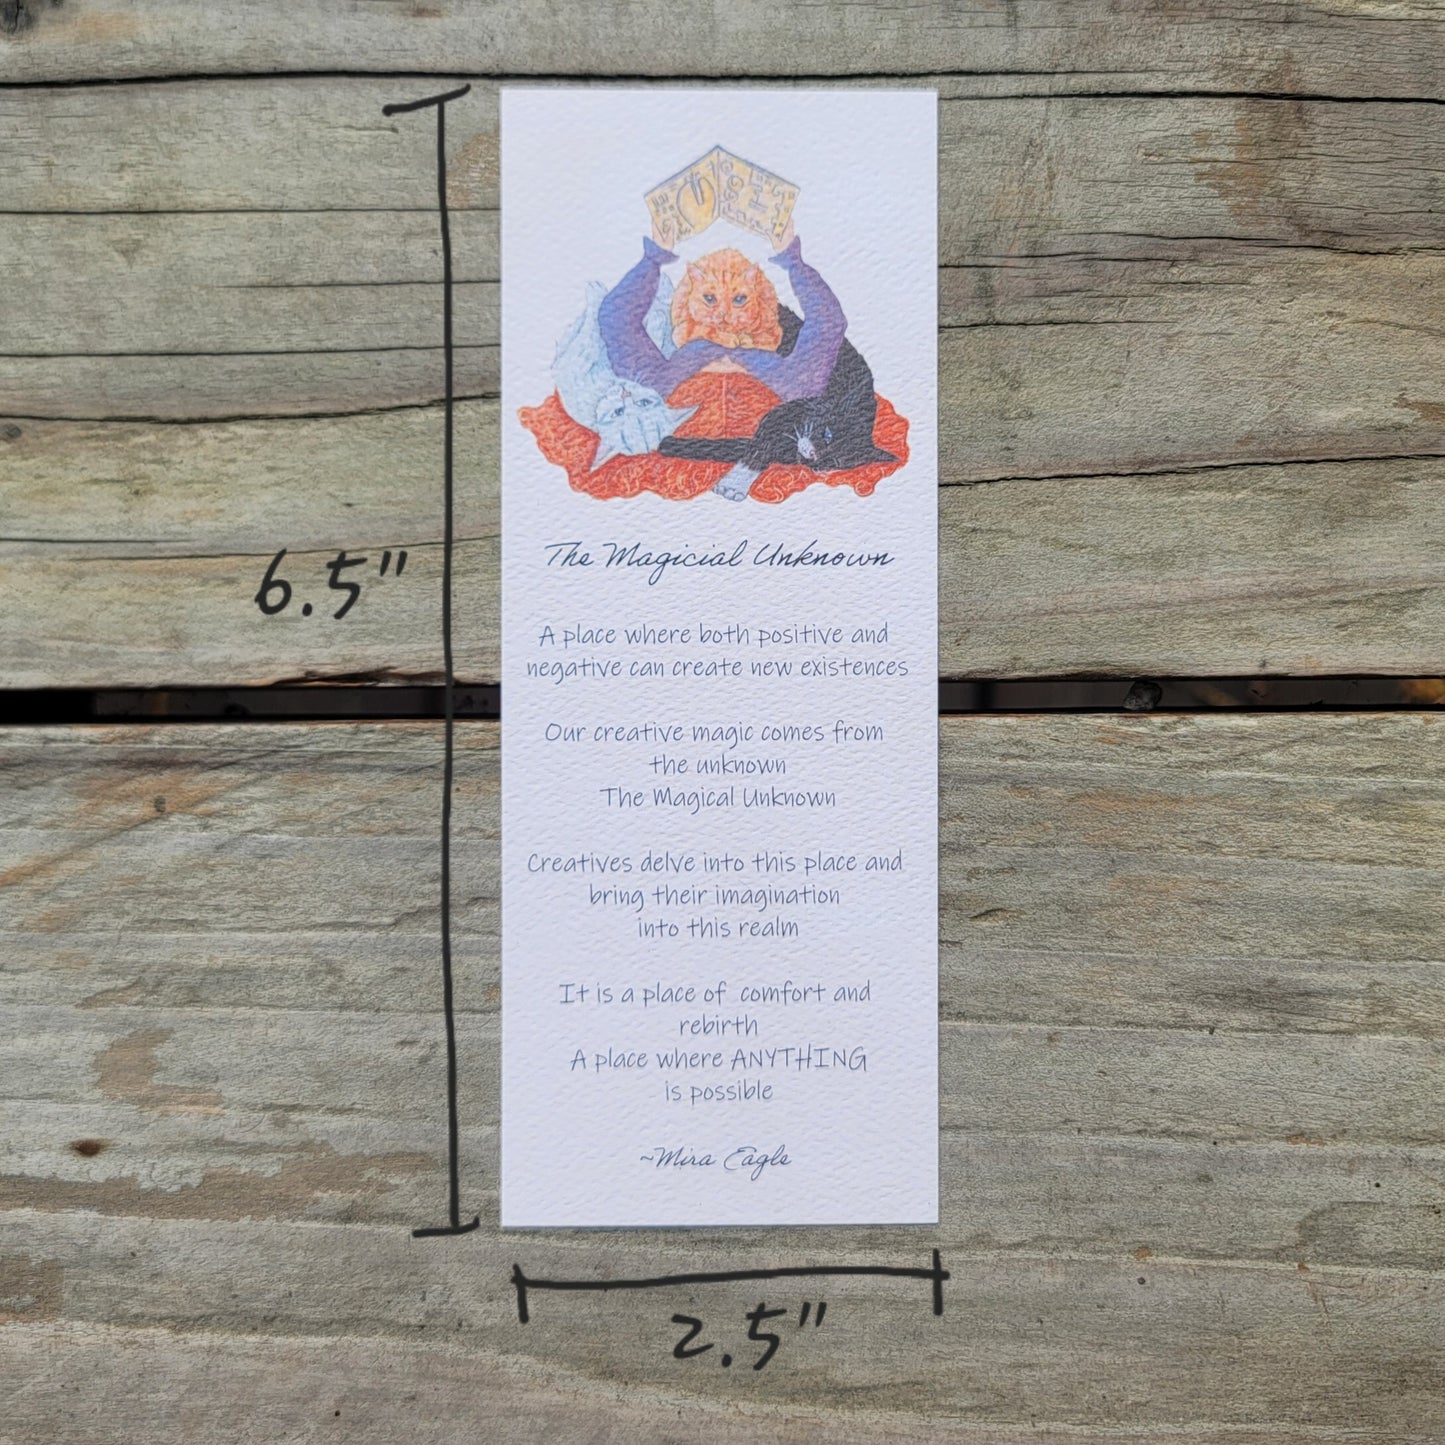 The Magicial Unknown
A place where both positive and
negative can create new existences
Our creative magic comes from
the unknown
The Magical Unknown
Creatives delve into this place and
bring their imagination
into this realm
It is a place of comfort and
rebirth
A place where ANYTHING
is possible
~Mira Eagle
6.5"
2.5"